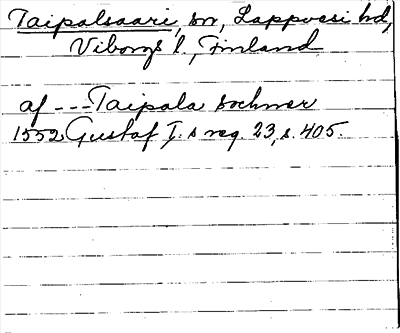 Taipalsaari, sn, Lappvesi hd,
Viborgs l., Finland
af --- Taipala sochner
1552 Gustaf I. s reg. 23, s. 405.